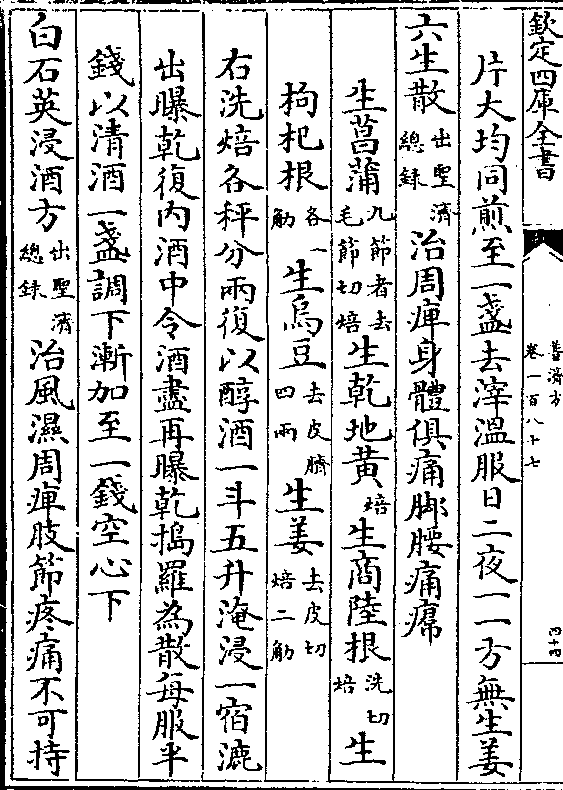 欽定四庫全書
普濟方
卷一百八十七
四十四
片大均同煎至一盞去滓溫服日二夜一一方無生姜
六生散出聖濟總錄治周痺身體俱痛脚腰痛㾱
生菖蒲九節者去毛節切焙生乾地黄焙生商陸根洗切焙生
枸杞根各一觔生烏豆去皮臍四兩生姜去皮切焙二觔
右洗焙各秤分兩復以醇酒一斗五升淹浸一宿漉
出曝乾復内酒中令酒盡再曝乾搗羅為散每服半
錢以清酒一盞調下漸加至一錢空心下
白石英浸酒方出聖濟總錄治風濕周痺肢節疼痛不可持